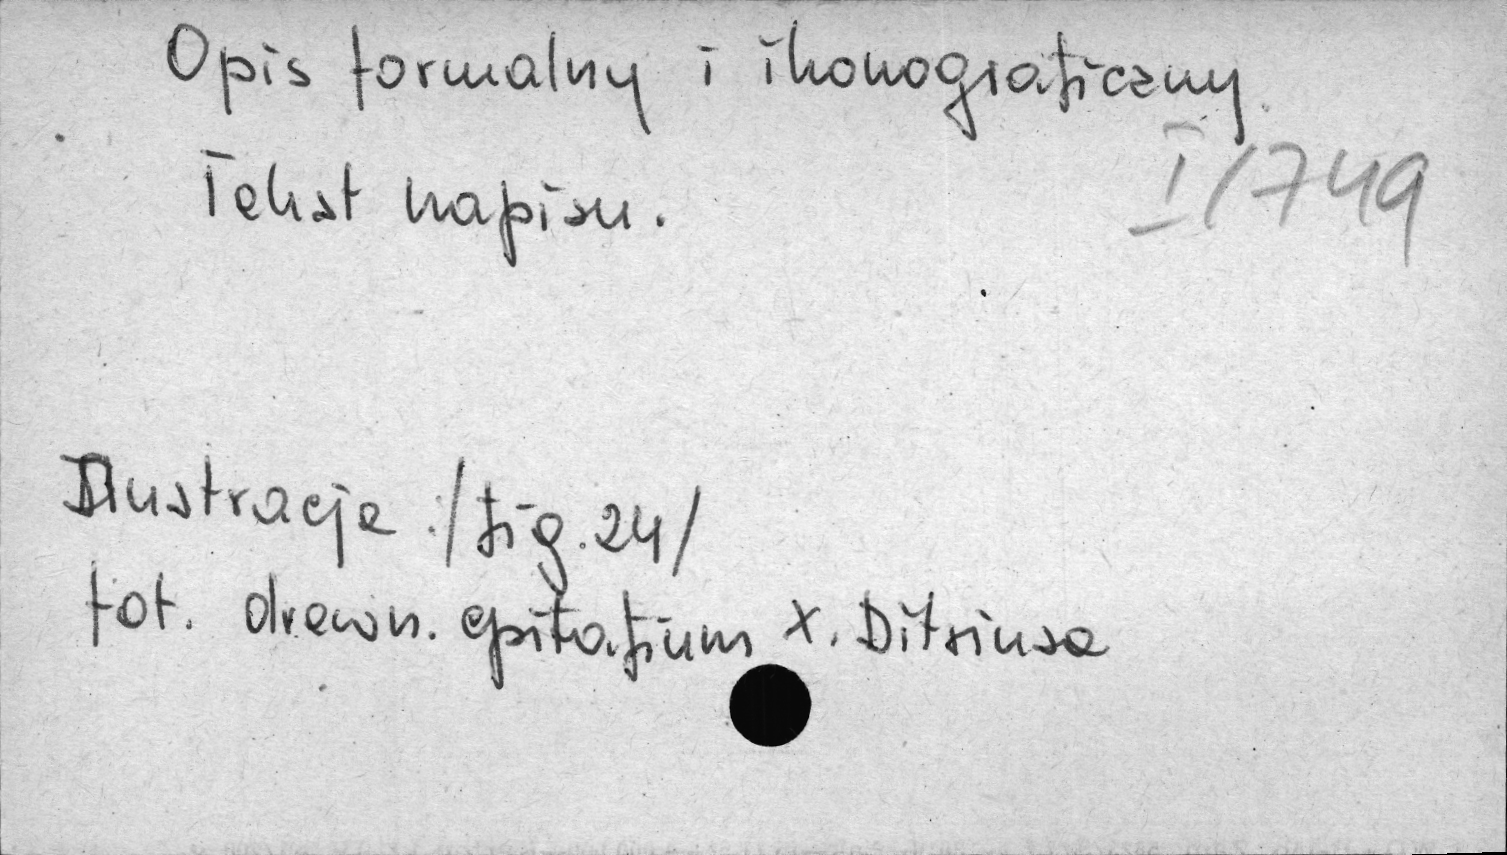 Opis formalny i ikonograficzny.
I/749
Tekst napisu.
Ilustracje :/fig. 24/
fot. drewn. epitafium X. Ditriusa